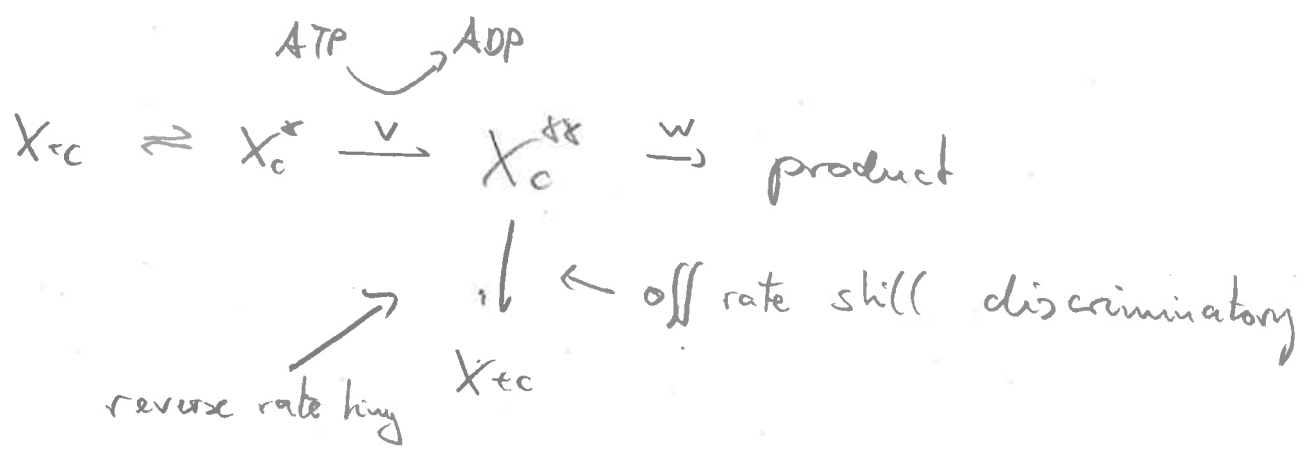 ATP ADP
X+c ⇌ Xc* —v→ Xc** —w→ product
← off rate still discriminatory
X+c
reverse rate tiny